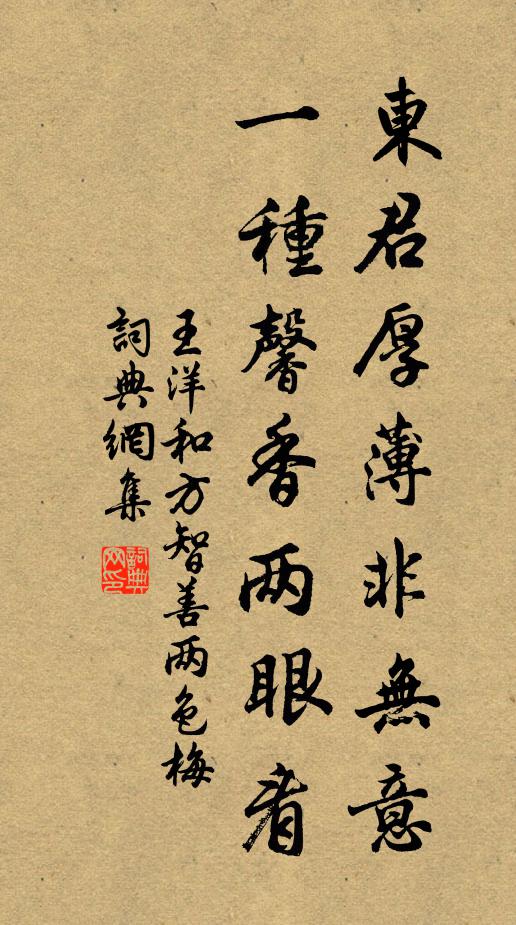 東君厚薄非無意
一種馨香两眼看
王洋和方智善两色梅
詞典網集
詞典网印